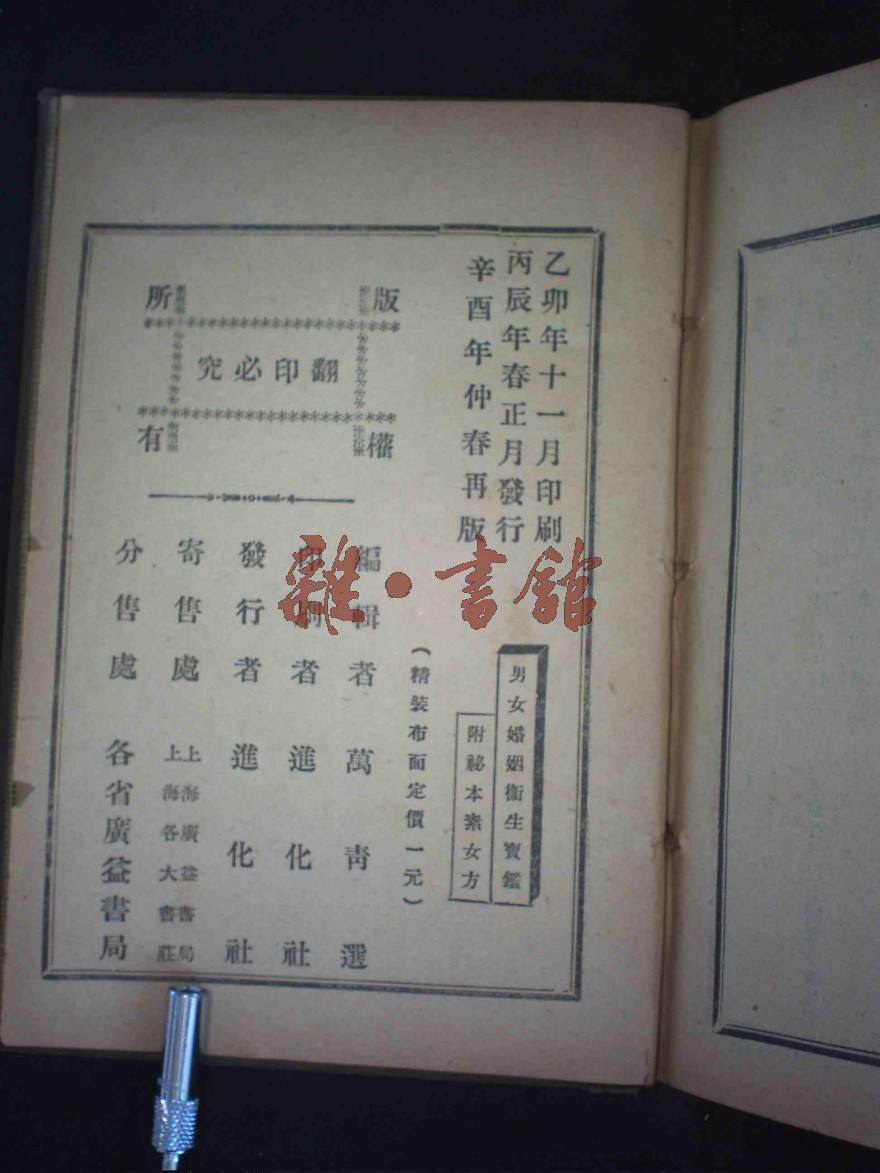 乙卯年十一月印刷
丙辰年春正月發行
辛酉年仲春再版
男女婚姻衞生寶鑑
附祕本素女方
(精裝布面定價一元)
版權所有
翻印必究
編輯者 萬青選
印刷者 進化社
發行者 進化社
寄售處 上海廣益書局
上海各大書莊
分售處 各省廣益書局
雜·書館